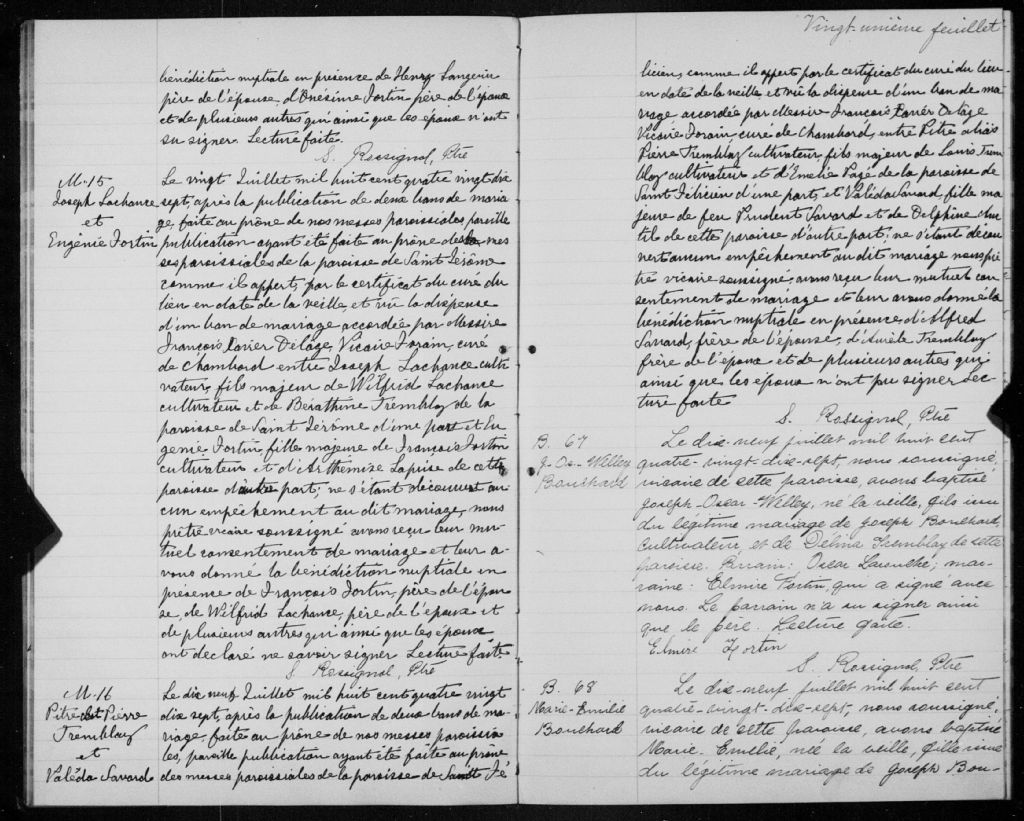 bénédiction nuptiale en présence de Henry Langevin
père de l'épouse, d'Onésime Fortin père de l'époux
et de plusieurs autres qui ainsi que les époux n'ont
su signer. Lecture faite.
S. Rossignol, Ptre
M. 15
Joseph Lachance
et
Eugénie Fortin
Le vingt Juillet mil huit cent quatre vingt dix
sept, après la publication de deux bans de maria
ge, faite au prône de nos messes paroissiales, pareille
publication ayant été faite au prône des mes
ses paroissiales de la paroisse de Saint Jérôme
comme il appert, par le certificat du curé du
lieu en date de la veille, et vû la dispense
d'un ban de mariage accordée par Messire
François Xavier Delâge, Vicaire Forain, curé
de Chambord entre Joseph Lachance culti
vateur, fils majeur de Wilfrid Lachance
cultivateur et de Bérathine Tremblay de la
paroisse de Saint Jérôme d'une part et Eu
génie Fortin, fille majeure de François Fortin
cultivateur et d'Arthemise Lapise de cette
paroisse d'autre part; ne s'étant découvert au
cun empêchement au dit mariage, nous
prêtre vicaire soussigné avons reçu leur mu
tuel consentement de mariage et leur a-
vons donné la bénédiction nuptiale en
présence de François Fortin, père de l'épou
se, de Wilfrid Lachance, père de l'époux et
de plusieurs autres qui ainsi que les époux
ont déclaré ne savoir signer Lecture faite
S. Rossignol, Ptre
M. 16
Pitre dit Pierre
Tremblay
et
Valéda Savard
Le dix neuf Juillet mil huit cent quatre vingt
dix sept, après la publication de deux bans de ma-
riage, faite au prône de nos messes paroissia
les, pareille publication ayant été faite au prône
des messes paroissiales de la paroisse de Saint Fé
Vingt-unième feuillet
licien, comme il appert par le certificat du curé du lieu
en date de la veille et vû la dispense d'un ban de ma
riage accordée par Messire François Xavier Delâge
Vicaire Forain curé de Chambord, entre Pitre alias
Pierre Tremblay cultivateur, fils majeur de Louis Trem
blay cultivateur et d'Emélie Pagé de la paroisse de
Saint Félicien d'une part, et Valéda Savard, fille ma
jeure de feu Prudent Savard et de Delphine
de cette paroisse d'autre part; ne s'étant décou
vert aucun empêchement au dit mariage nous prê
tre vicaire soussigné, avons reçu leur mutuel con
sentement de mariage et leur avons donné la
bénédiction nuptiale en présence d'Alfred
Savard, frère de l'épouse, d'Aurèle Tremblay
frère de l'époux et de plusieurs autres qui
ainsi que les époux n'ont pu signer Lec
ture faite
S. Rossignol, Ptre
B. 67
J.-Os.-Willey
Bouchard
Le dix-neuf juillet mil huit cent
quatre-vingt-dix-sept, nous soussigné,
vicaire de cette paroisse, avons baptisé
Joseph-Oscar-Willey, né la veille, fils issu
du légitime mariage de Joseph Bouchard,
cultivateur, et de Delima Tremblay de cette
paroisse. Parrain: Oscar Larouche; mar-
raine: Elmire Fortin, qui a signé avec
nous. Le parrain n'a su signer ainsi
que le père. Lecture faite.
Elmire Fortin
S. Rossignol, Ptre
B. 68
Marie-Emélie
Bouchard
Le dix-neuf juillet mil huit cent
quatre-vingt-dix-sept, nous soussigné,
vicaire de cette paroisse, avons baptisé
Marie-Emélie, née la veille, fille issue
du légitime mariage de Joseph Bou-